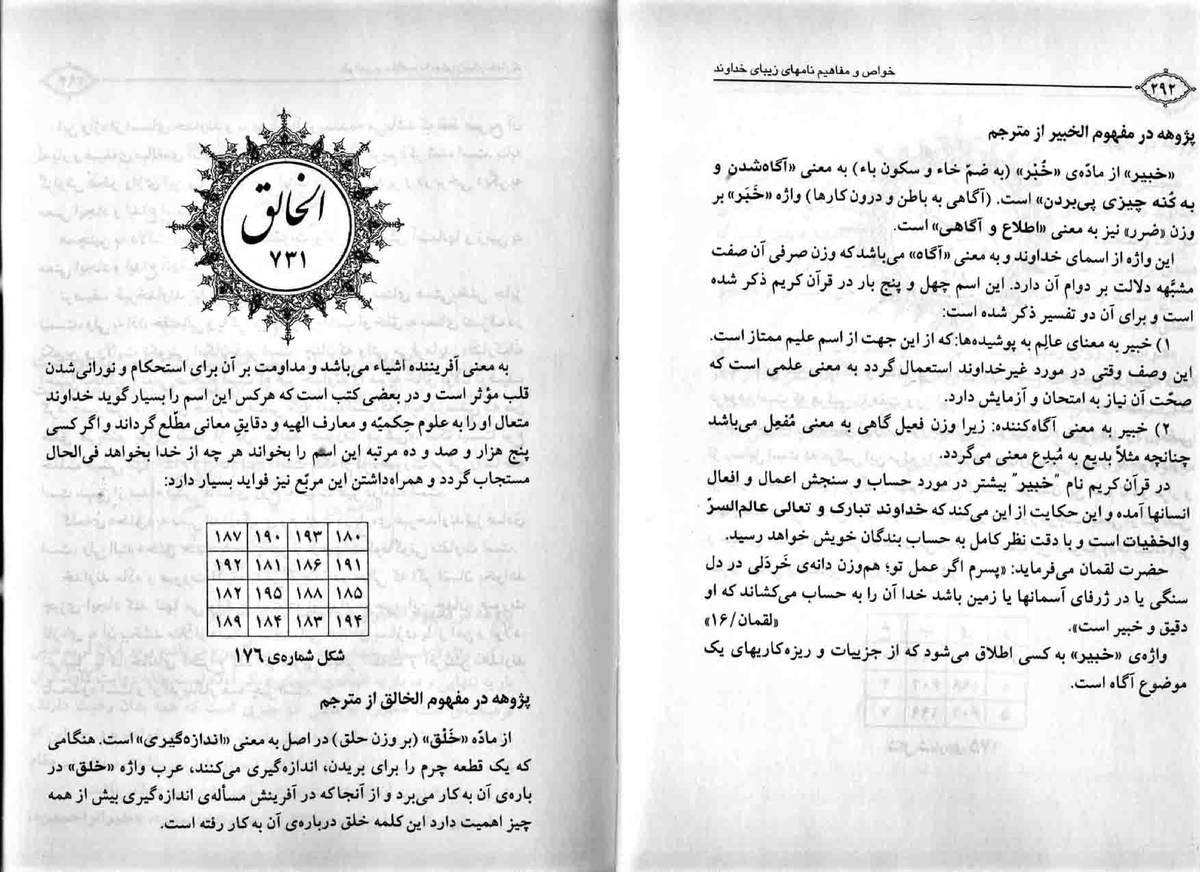 خواص و مفاهیم نامهای زیبای خداوند
۲۹۲
پژوهه در مفهوم الخبیر از مترجم
«خبیر» از مادّه‌ی «خُبْر» (به ضمّ خاء و سکون باء) به معنی «آگاه‌شدن و
به کُنه چیزی پی‌بردن» است. (آگاهی به باطن و درون کارها) واژه «خَبَر» بر
وزن «ضرر» نیز به معنی «اطلاع و آگاهی» است.
این واژه از اسمای خداوند و به معنی «آگاه» می‌باشد که وزن صرفی آن صفت
مشبّهه دلالت بر دوام آن دارد. این اسم چهل و پنج بار در قرآن کریم ذکر شده
است و برای آن دو تفسیر ذکر شده است:
۱) خبیر به معنای عالِم به پوشیده‌ها: که از این جهت از اسم علیم ممتاز است.
این وصف وقتی در مورد غیرخداوند استعمال گردد به معنی علمی است که
صحّت آن نیاز به امتحان و آزمایش دارد.
۲) خبیر به معنی آگاه‌کننده: زیرا وزن فعیل گاهی به معنی مُفعِل می‌باشد
چنانچه مثلاً بدیع به مُبدِع معنی می‌گردد.
در قرآن کریم نام "خبیر" بیشتر در مورد حساب و سنجش اعمال و افعال
انسانها آمده و این حکایت از این می‌کند که خداوند تبارک و تعالی عالم‌السرّ
والخفیات است و با دقت نظر کامل به حساب بندگان خویش خواهد رسید.
حضرت لقمان می‌فرماید: «پسرم اگر عمل تو؛ هم‌وزن دانه‌ی خَردَلی در دل
سنگی یا در ژرفای آسمانها یا زمین باشد خدا آن را به حساب می‌کشاند که او
دقیق و خبیر است». «لقمان/۱۶»
واژه‌ی «خبیر» به کسی اطلاق می‌شود که از جزییات و ریزه‌کاریهای یک
موضوع آگاه است.
الخالق
۷۳۱
به معنی آفریننده اشیاء می‌باشد و مداومت بر آن برای استحکام و نورانی‌شدن
قلب مؤثر است و در بعضی کتب است که هرکس این اسم را بسیار گوید خداوند
متعال او را به علوم حِکمیّه و معارف الهیه و دقایقِ معانی مطّلع گرداند و اگر کسی
پنج هزار و صد و ده مرتبه این اسم را بخواند هر چه از خدا بخواهد فی‌الحال
مستجاب گردد و همراه‌داشتن این مربّع نیز فواید بسیار دارد:
۱۸۷ ۱۹۰ ۱۹۳ ۱۸۰
۱۹۲ ۱۸۱ ۱۸۶ ۱۹۱
۱۸۲ ۱۹۵ ۱۸۸ ۱۸۵
۱۸۹ ۱۸۴ ۱۸۳ ۱۹۴
شکل شماره‌ی ۱۷۶
پژوهه در مفهوم الخالق از مترجم
از مادّه «خَلْق» (بر وزن حلق) در اصل به معنی «اندازه‌گیری» است. هنگامی
که یک قطعه چرم را برای بریدن، اندازه‌گیری می‌کنند، عرب واژه «خلق» در
باره‌ی آن به کار می‌برد و از آنجا که در آفرینش مسأله‌ی اندازه‌گیری بیش از همه
چیز اهمیت دارد این کلمه خلق درباره‌ی آن به کار رفته است.